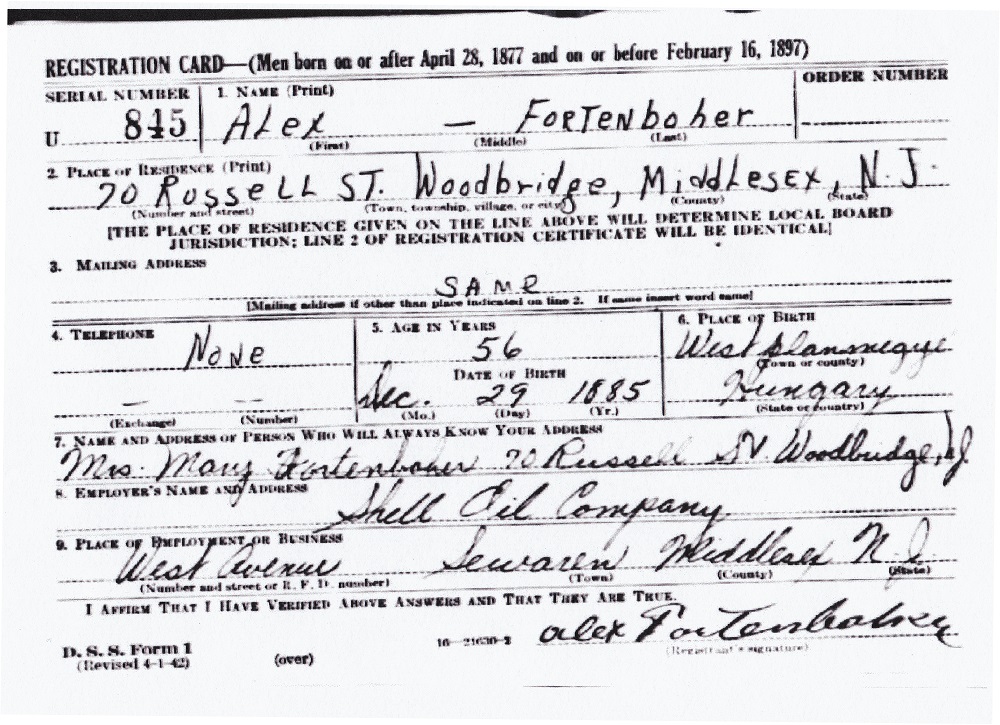 REGISTRATION CARD—(Men born on or after April 28, 1877 and on or before February 16, 1897)
SERIAL NUMBER 1. NAME (Print) ORDER NUMBER
U 845 ALex — FORTENbaher
(First) (Middle) (Last)
2. PLACE OF RESIDENCE (Print)
70 RussELL ST. Woodbridge, MiddLesex, N.J.
(Number and street) (Town, township, village, or city) (County) (State)
[THE PLACE OF RESIDENCE GIVEN ON THE LINE ABOVE WILL DETERMINE LOCAL BOARD
JURISDICTION; LINE 2 OF REGISTRATION CERTIFICATE WILL BE IDENTICAL]
3. MAILING ADDRESS
SAMe
[Mailing address if other than place indicated on line 2. If same insert word same]
4. TELEPHONE 5. AGE IN YEARS 6. PLACE OF BIRTH
NoNe 56 West
(Town or county)
DATE OF BIRTH
— — Dec. 29 1885 Hungary
(Exchange) (Number) (Mo.) (Day) (Yr.) (State or country)
7. NAME AND ADDRESS OF PERSON WHO WILL ALWAYS KNOW YOUR ADDRESS
Mrs. Mary Fortenbaher 70 Russell St. Woodbridge, NJ
8. EMPLOYER'S NAME AND ADDRESS
Shell Oil Company
9. PLACE OF EMPLOYMENT OR BUSINESS
West Avenue Sewaren Middlesex N.J.
(Number and street or R. F. D. number) (Town) (County) (State)
I AFFIRM THAT I HAVE VERIFIED ABOVE ANSWERS AND THAT THEY ARE TRUE.
D. S. S. Form 1 16—21630-2 alex Fortenbaher
(Revised 4-1-42) (over) (Registrant's signature)